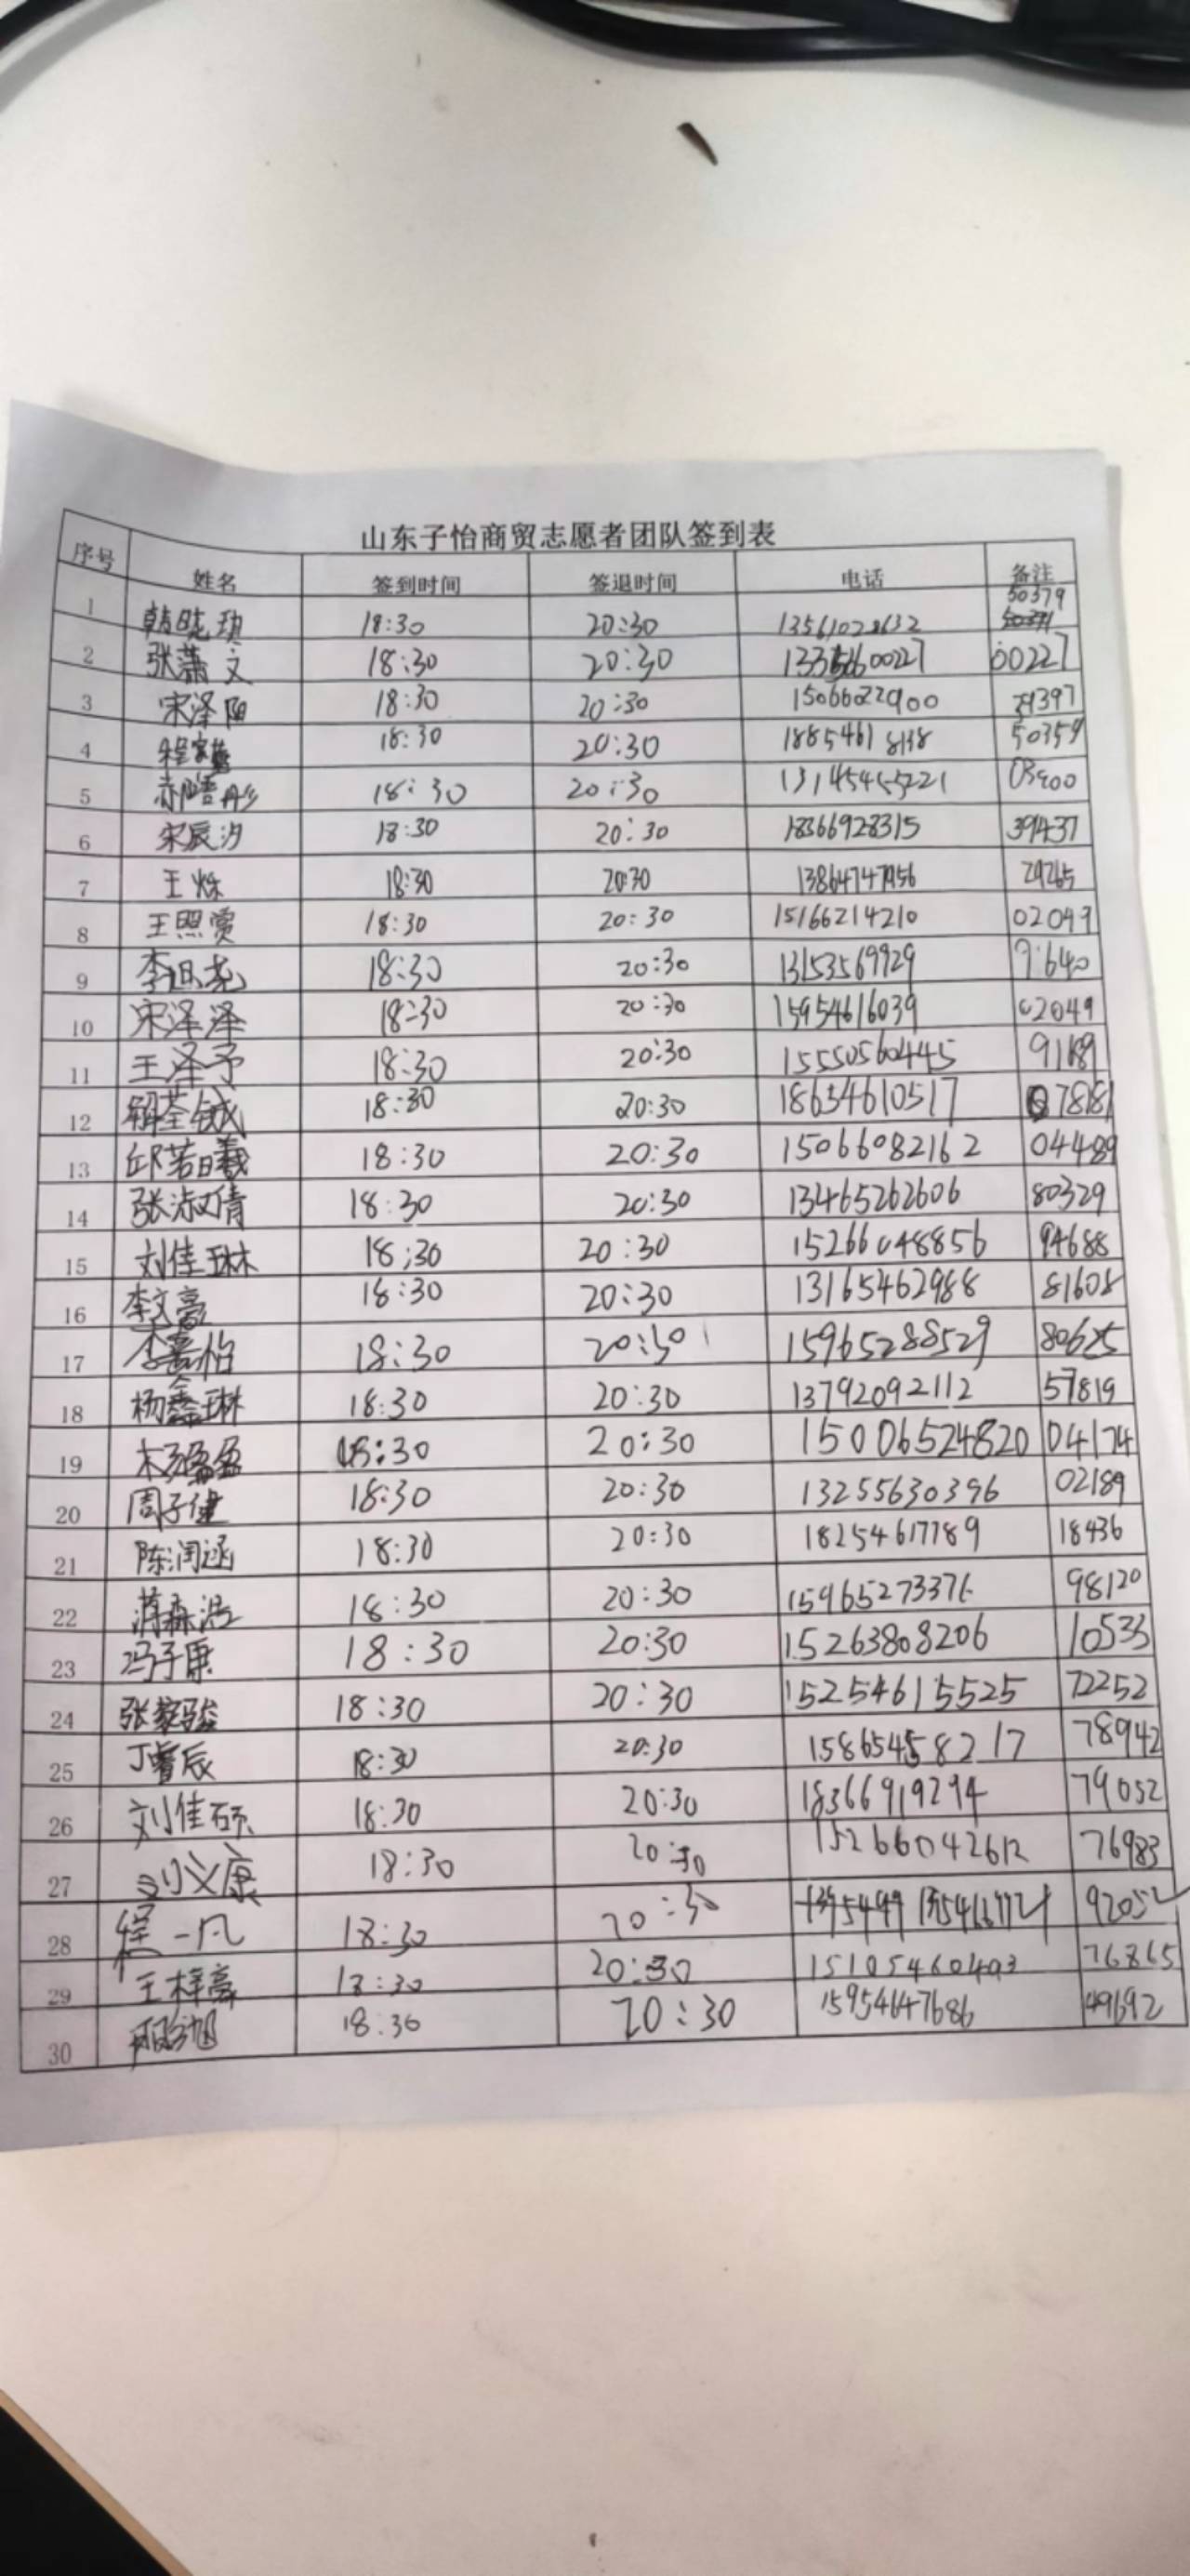 山东子怡商贸志愿者团队签到表
序号 姓名 签到时间 签退时间 电话 备注
1 18:30 20:30 13561028632 50379
2 张潇文 18:30 20:30 00227
3 宋泽阳 18:30 20:30 15066022900
4 18:30 20:30 18854618138
5 18:30 20:30 13145455221
6 宋辰汐 18:30 20:30 18366928315 39437
7 王烁 18:30 20:30 13864747956 29265
8 王照赏 18:30 20:30 15166214210 02049
9 18:30 20:30 13153569929
10 宋泽泽 18:30 20:30 15954616039 02049
11 王泽予 18:30 20:30 15550560445
12 18:30 20:30 18654610517 78181
13 邱若曦 18:30 20:30 15066082162 04489
14 张淑倩 18:30 20:30 13465262606 80329
15 刘佳琳 18:30 20:30 15266048856 94688
16 李文豪 18:30 20:30 13165462988 81608
17 李嘉怡 18:30 20:30 15965288529
18 杨鑫琳 18:30 20:30 13792092112 57819
19 18:30 20:30 15006524820 04174
20 周子健 18:30 20:30 13255630396 02189
21 陈润涵 18:30 20:30 18254617789 18436
22 蒋森浩 18:30 20:30 15965273376 98120
23 冯子康 18:30 20:30 15263808206 10533
24 18:30 20:30 15254615525 72252
25 丁睿辰 18:30 20:30 15865458217 78942
26 刘佳硕 18:30 20:30 18366919294 79052
27 刘义康 18:30 20:30 15266042612 76983
28 程一凡 18:30 20:30 92052
29 王梓豪 18:30 20:30 151054660493 76865
30 18:30 20:30 15954647686 49692